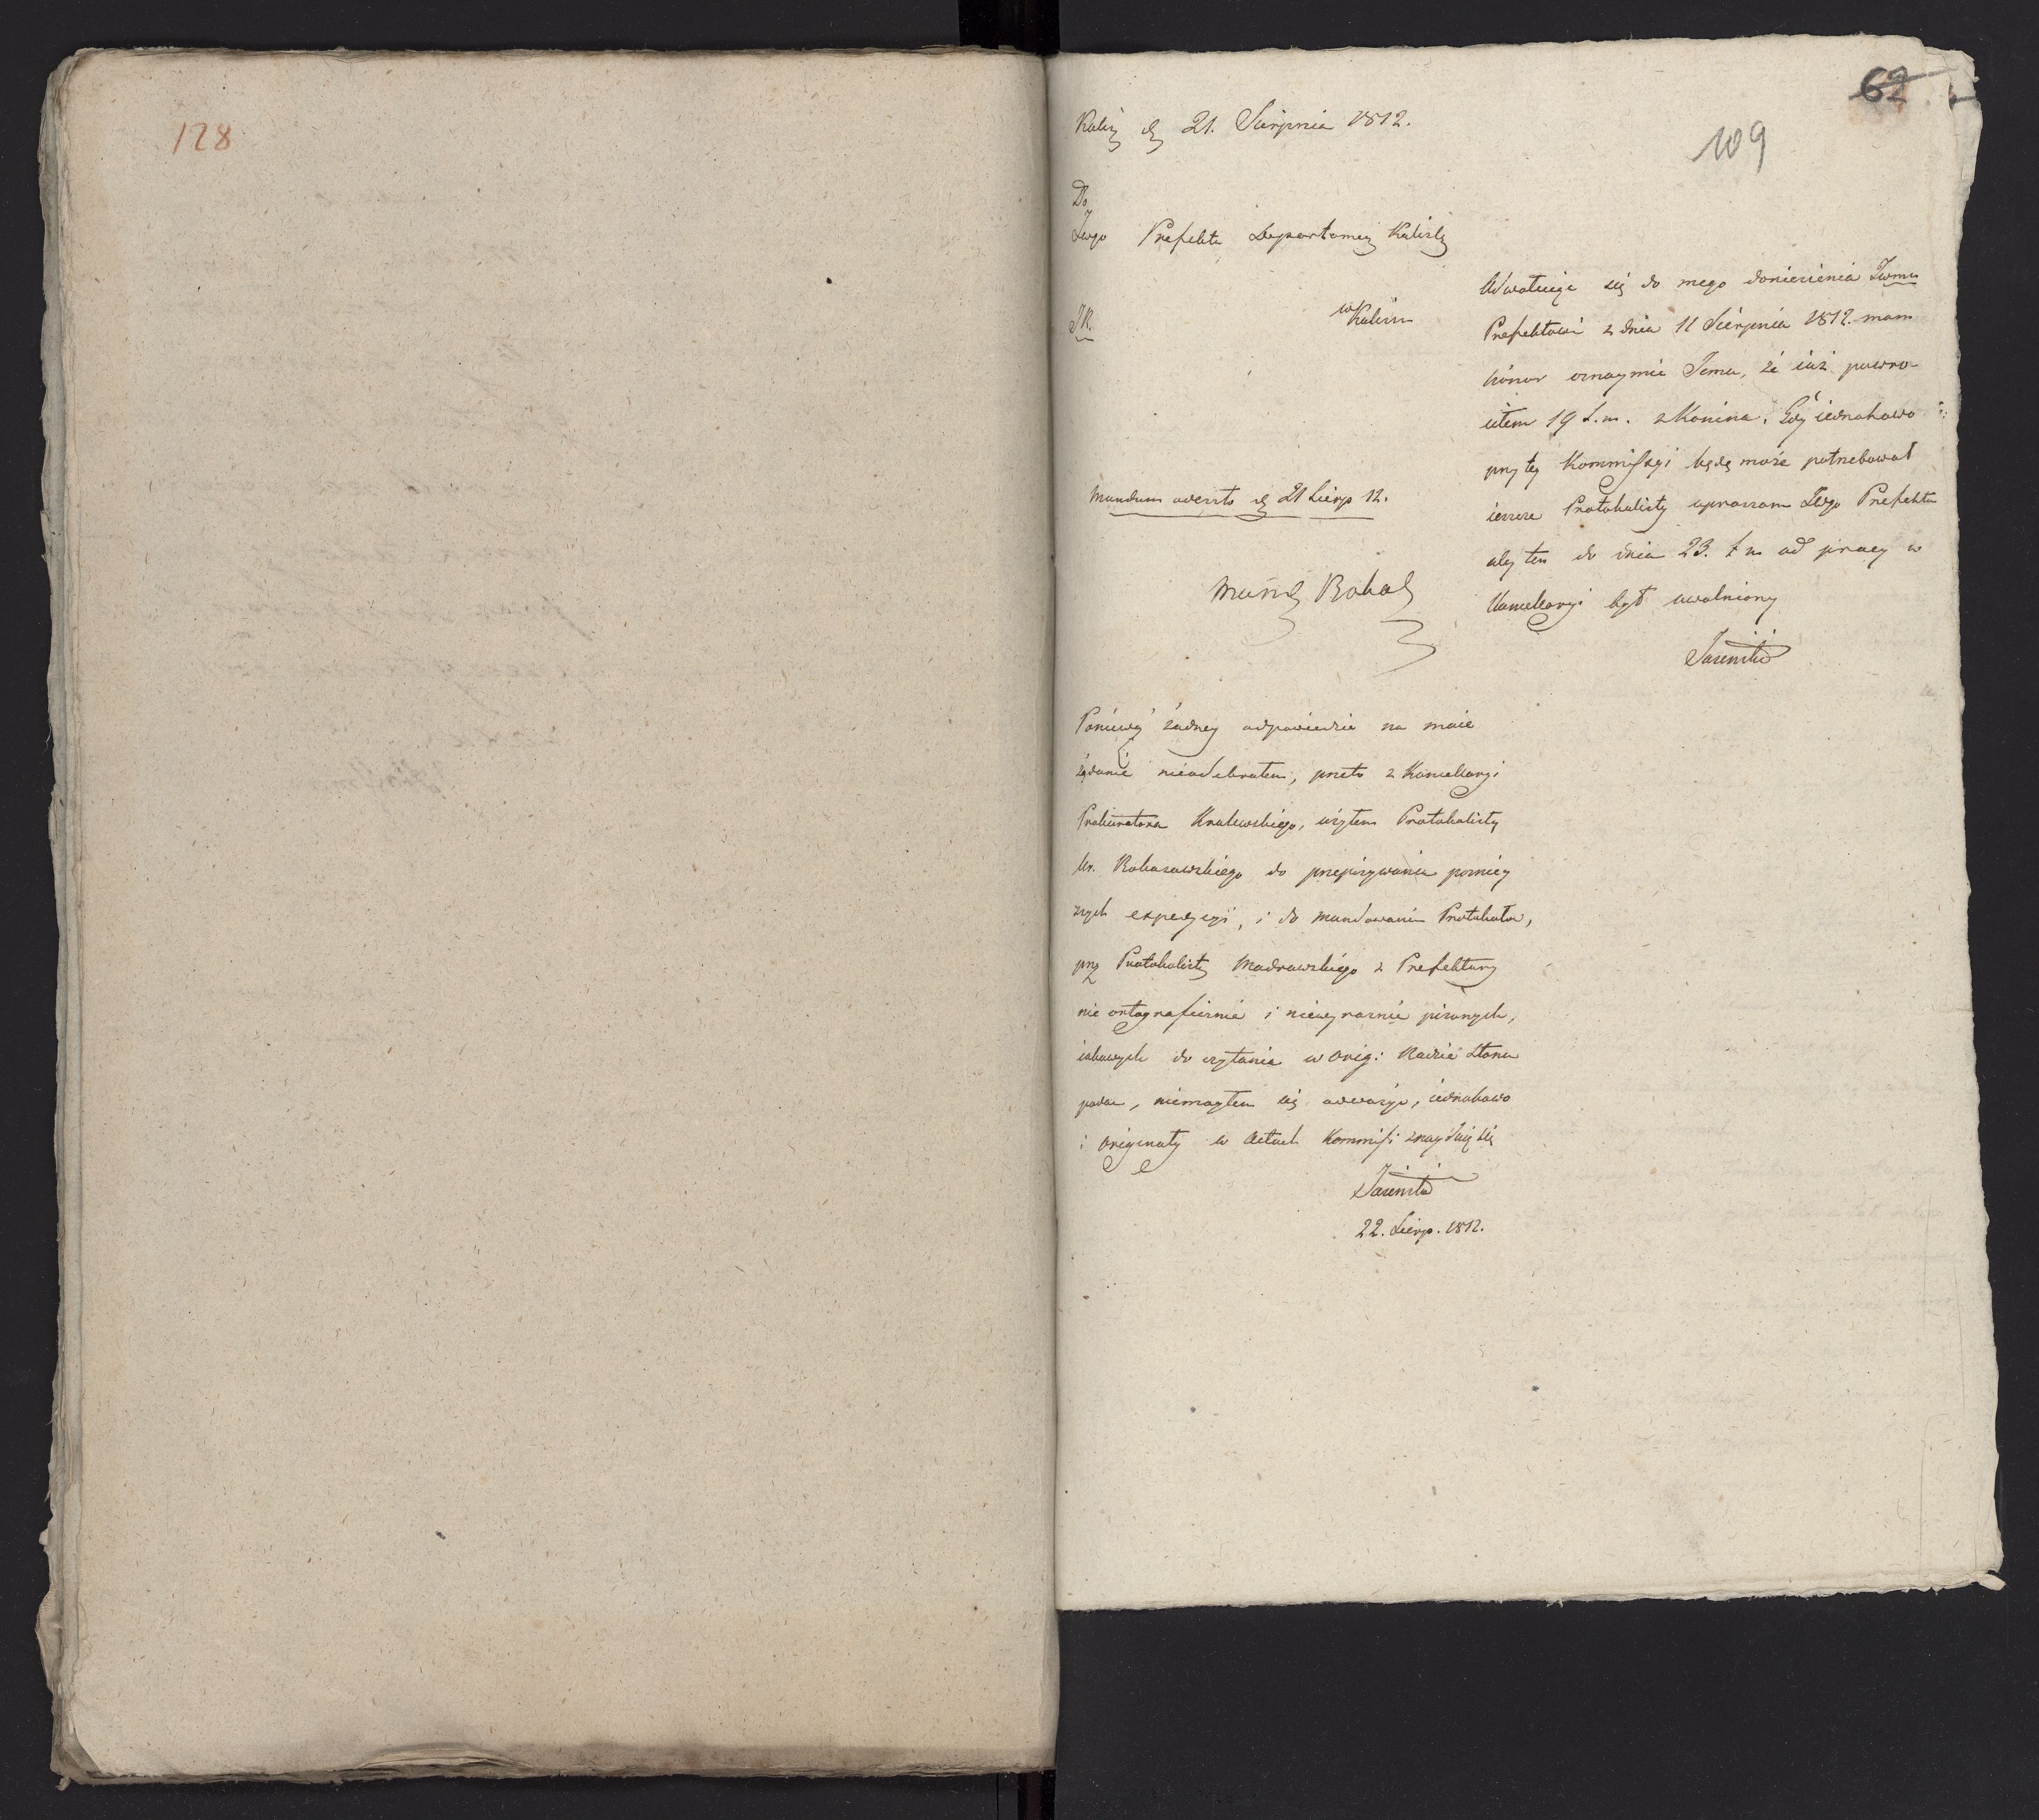 128
62
109
Kalisz d. 21. Sierpnia 1812.
Do
JWgo Prefekta Departamen Kalisk
w Kaliszu
Odwołuiąc się do mego doniesienia JWmu
Prefektowi z dnia 11 Sierpnia 1812. mam
honor oznaymić Jemu, że iuż powro-
ciłem 19 t. m. z Konina. Gdy iednakowo
przy tey Kommissyi będę może potrzebował
ieszcze Protokolisty upraszam JWgo Prefekta
aby ten do dnia 23. t m od pracy w
Kancellaryi był uwolniony
Mundum oddesz. d. 21 Sierp 12.
Mund Rokos
Ponieważ żadney odpowiedzi na moie
żądanie nieodebrałem, przeto z Kancellaryi
Prokuratora Krolewskiego, użyłem Protokolisty
Ur. Rokosowskiego do przepisywania
expedycyi, i do mundowania Protokołow,
prz Protokolistę Madrowskiego z Prefektury
nie ortograficznie i niewyraznie pisanych,
iakowych do czytania w orig: Radzie Stanu
podać, niemogłem się odważyć, iednakowo
i originały w Actach Kommisi znayduią się
22. Sierp. 1812.